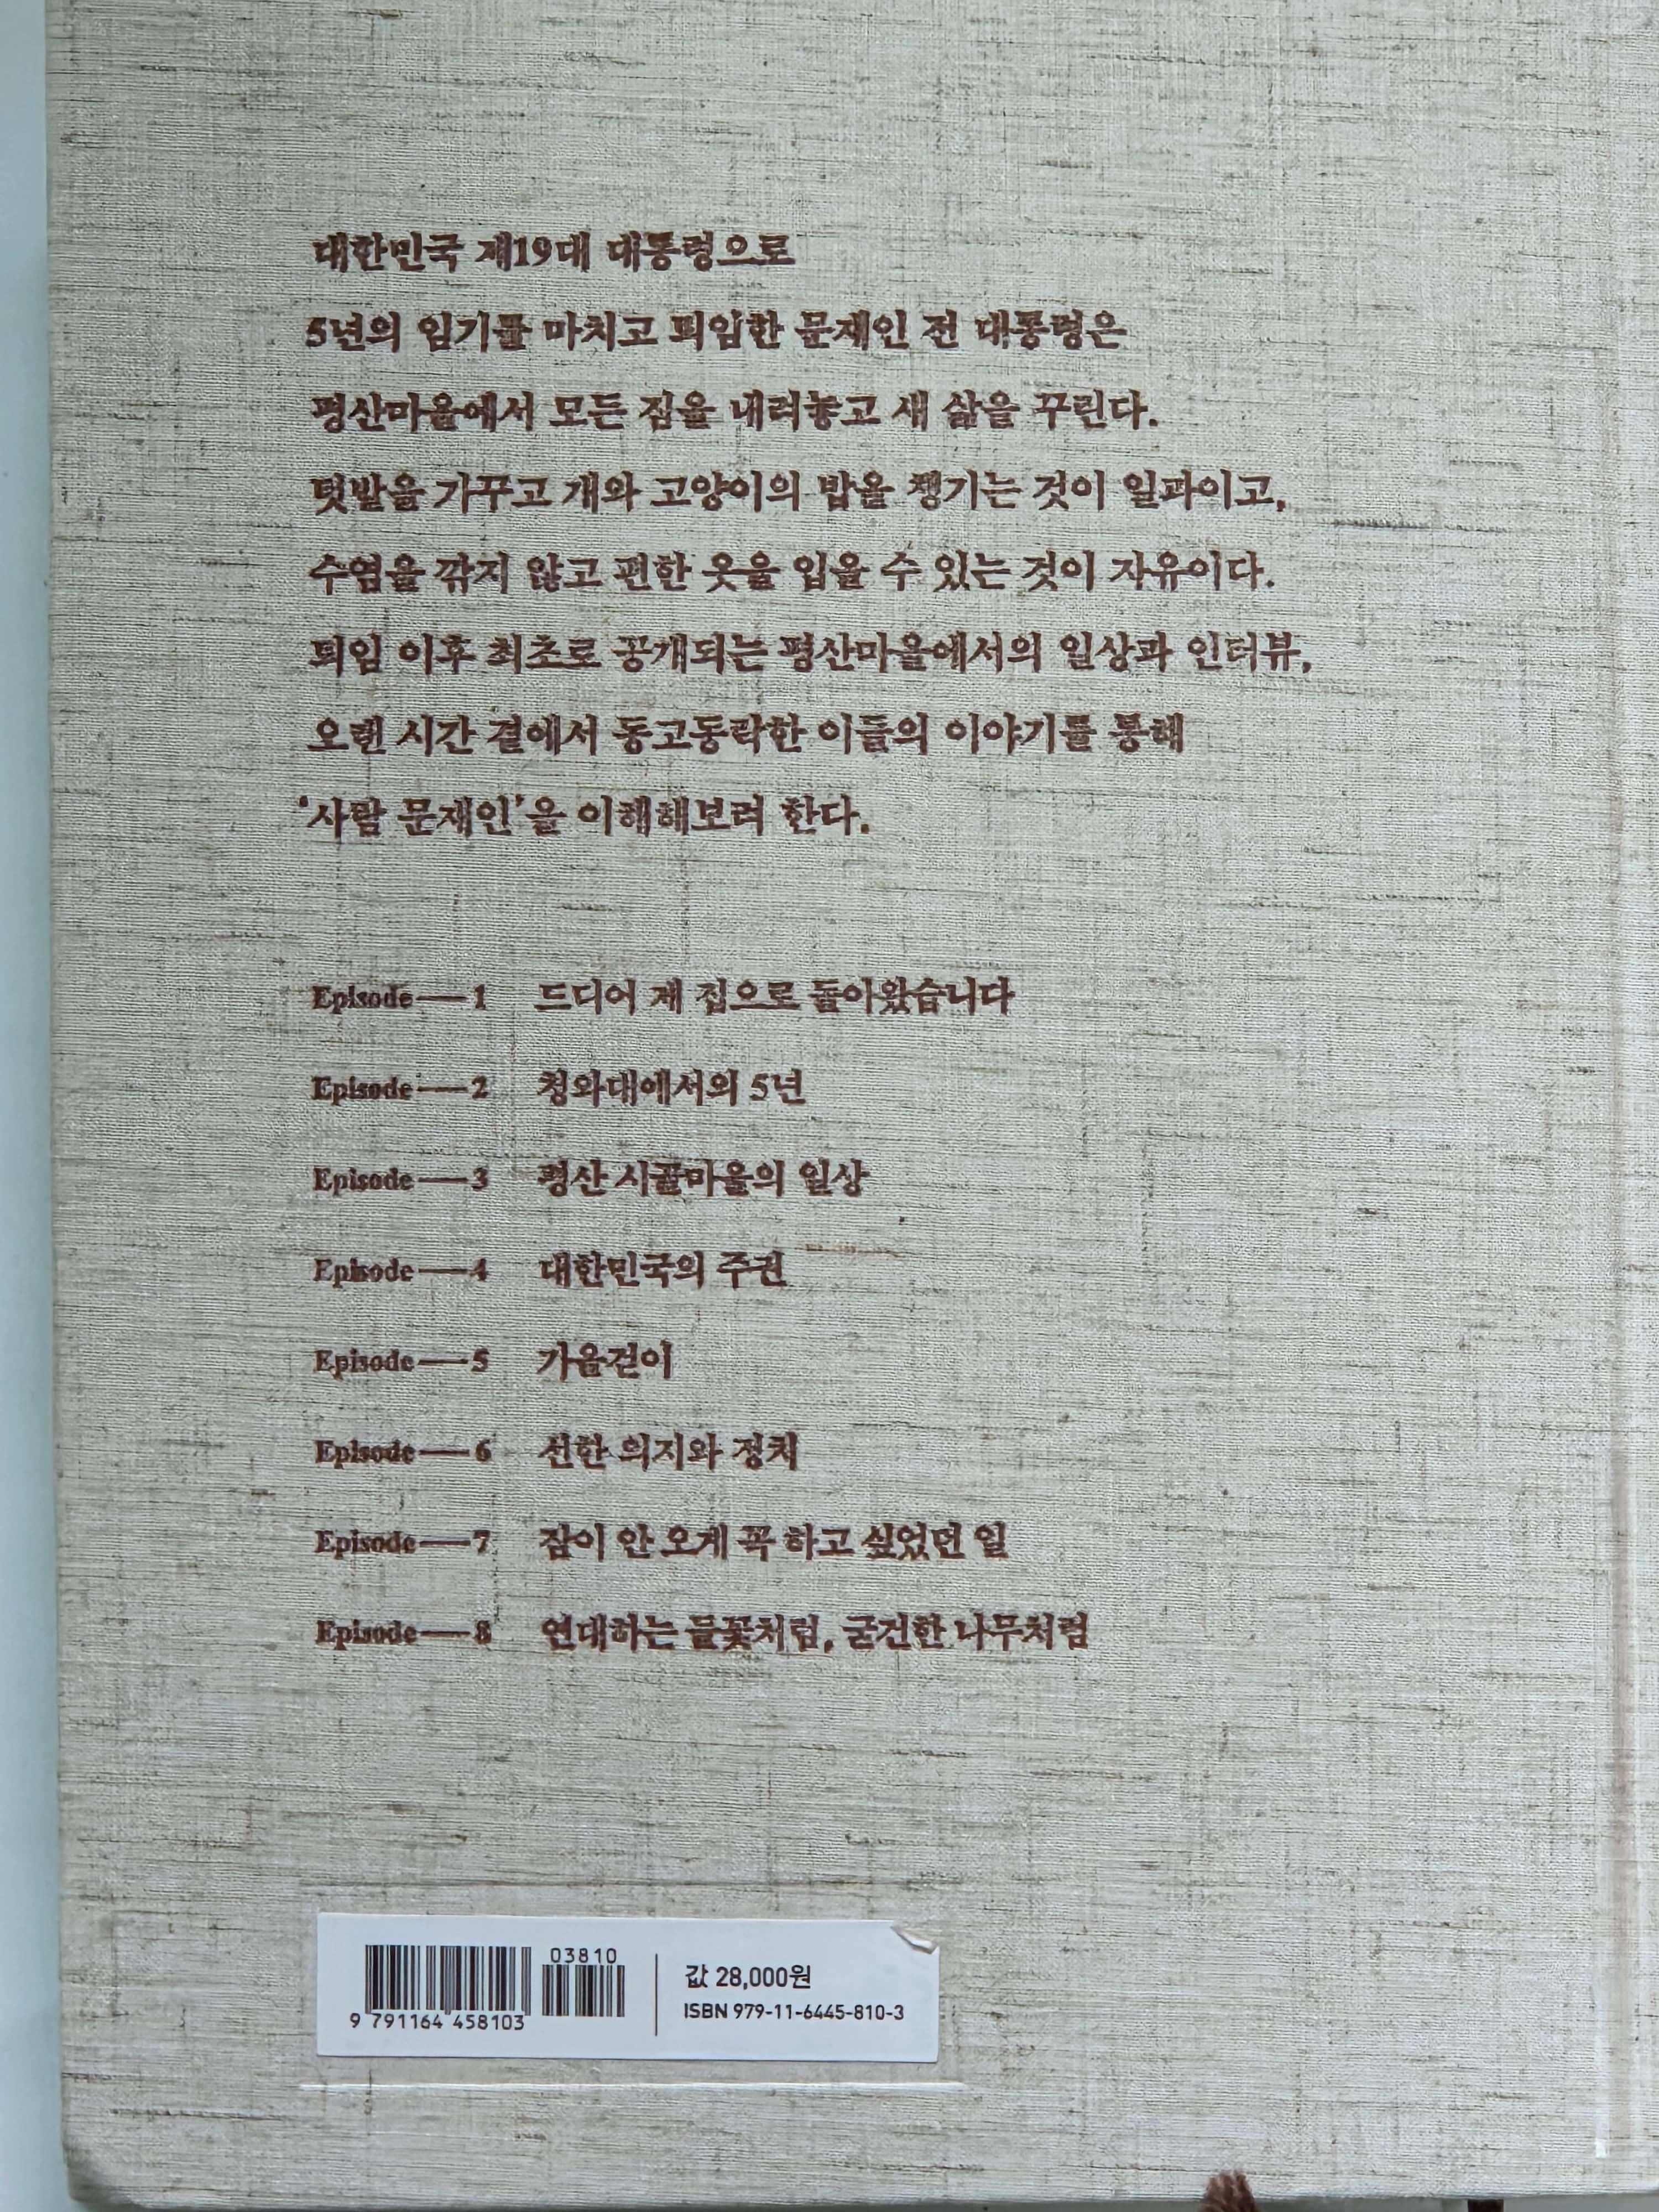 대한민국 제19대 대통령으로
5년의 임기를 마치고 퇴임한 문재인 전 대통령은
평산마을에서 모든 짐을 내려놓고 새 삶을 꾸린다.
텃밭을 가꾸고 개와 고양이의 밥을 챙기는 것이 일과이고,
수염을 깎지 않고 편한 옷을 입을 수 있는 것이 자유이다.
퇴임 이후 최초로 공개되는 평산마을에서의 일상과 인터뷰,
오랜 시간 곁에서 동고동락한 이들의 이야기를 통해
‘사람 문재인’을 이해해보려 한다.
Episode—1 드디어 제 집으로 돌아왔습니다
Episode—2 청와대에서의 5년
Episode—3 평산 시골마을의 일상
Episode—4 대한민국의 주권
Episode—5 가을걷이
Episode—6 선한 의지와 정치
Episode—7 잠이 안 오게 꼭 하고 싶었던 일
Episode—8 연대하는 들꽃처럼, 굳건한 나무처럼
03810
9 791164 458103
값 28,000원
ISBN 979-11-6445-810-3